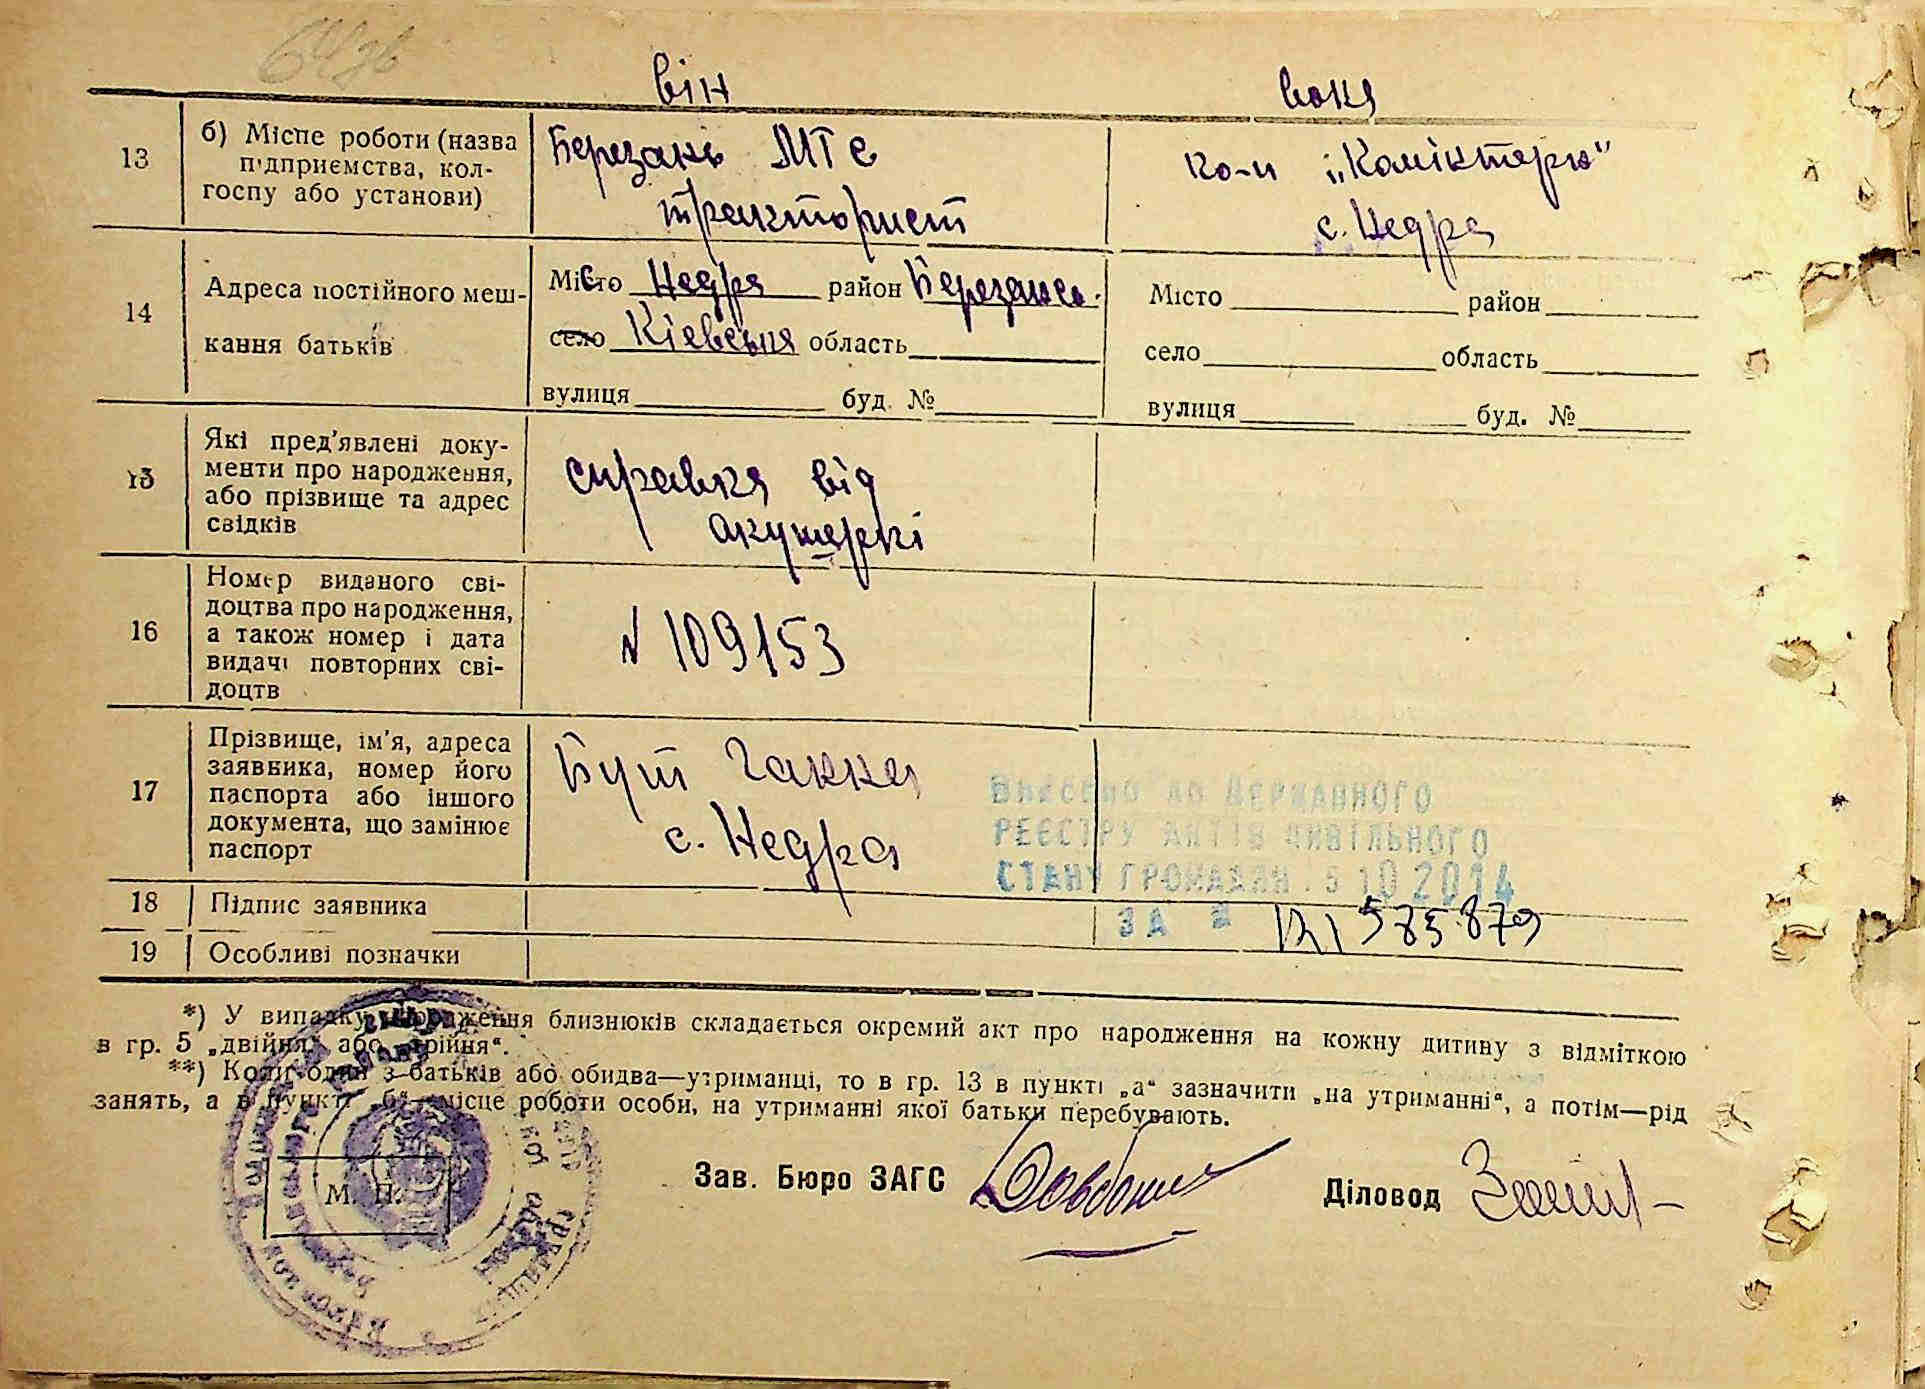 64 зв
він вона
13 б) Місце роботи (назва підприємства, колгоспу або установи)
Березань МТС
тракторист
ко-п „Комінтерн“
с. Недра
14 Адреса постійного мешкання батьків
Місто Недра район Березансь.
село Кієвська область
вулиця буд. №
Місто район
село область
вулиця буд. №
15 Які пред'явлені документи про народження, або прізвище та адрес свідків
справка від
акушеркі
16 Номер виданого свідоцтва про народження, а також номер і дата видачі повторних свідоцтв
N 109153
17 Прізвище, ім'я, адреса заявника, номер його паспорта або іншого документа, що замінює паспорт
Бут Ганна
с. Недра
Внесено до Державного
реєстру актів цивільного
стану громадян 5 10 2014
за №
18 Підпис заявника
19 Особливі позначки
*) У випадку народження близнюків складається окремий акт про народження на кожну дитину з відміткою
в гр. 5 „двійня“ або „трійня“.
**) Коли один з батьків або обидва—утриманці, то в гр. 13 в пункті „а“ зазначити „на утриманні“, а потім—рід
занять, а в пункті „б“—місце роботи особи, на утриманні якої батьки перебувають.
М. П.
Зав. Бюро ЗАГС
Діловод